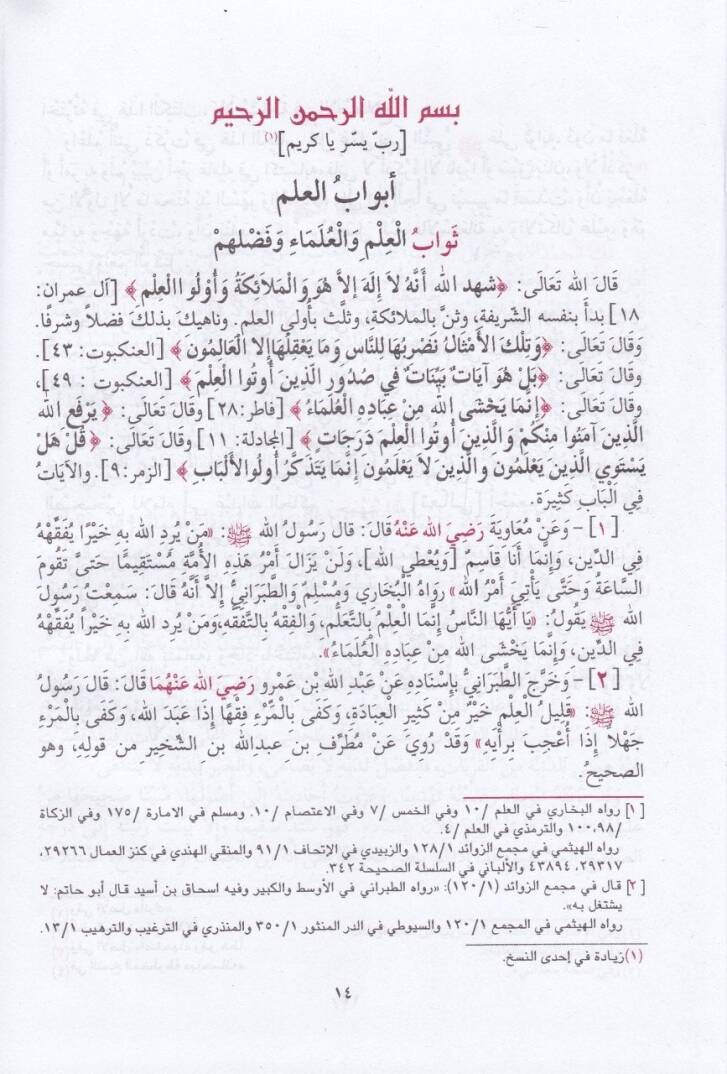 بسم الله الرحمن الرحيم
[ربّ يسّر يا كريم](١)
أبوابُ العلم
ثَوابُ الْعِلْمِ وَالْعُلَمَاءِ وَفَضْلهِمْ
قَالَ الله تَعَالَى: ﴿شهد الله أَنَّهُ لاَ إِلَهَ إِلاَّ هُوَ وَالْمَلاَئكَةُ وَأُوْلُوا الْعِلْم﴾ [آل عمران:
١٨] بدأ بنفسه الشريفة، وثنَّ بالملائكة، وثلَّث بأُولي العلم. وناهيكَ بذلكَ فضلاً وشرفًا.
وَقَالَ تَعَالَى: ﴿وَتِلْكَ الأَمْثَالُ نَضْرِبُهَا لِلنَّاسِ وَمَا يَعْقِلُهَا إِلا الْعَالِمُونَ﴾ [العنكبوت: ٤٣].
وَقَالَ تَعَالَى: ﴿بَلْ هُوَ آيَاتٌ بَيّنَاتٌ فِي صُدُورِ الَّذِينَ أُوتُوا الْعِلْمَ﴾ [العنكبوت: ٤٩]،
وَقَالَ تَعَالَى: ﴿إِنَّمَا يَخْشَى الله مِنْ عِبَادِهِ الْعُلَمَاءُ﴾ [فاطر: ٢٨] وقَالَ تَعَالَى: ﴿يَرْفَعِ الله
الَّذِينَ آمَنُوا مِنكُمْ وَالَّذِينَ أُوتُوا الْعِلْمَ دَرَجَاتٍ﴾ [المجادلة: ١١] وقَالَ تَعَالَى: ﴿قُلْ هَلْ
يَسْتَوِي الَّذِينَ يَعْلَمُونَ وَالَّذِينَ لاَ يَعْلَمُونَ إِنَّمَا يَتَذَكَّرُ أُولُوا الأَلْبَابِ﴾ [الزمر: ٩]. والآيَاتُ
فِي الْبَابِ كَثِيرَة.
[١] - وَعَنْ مُعَاوِيَةَ رَضِيَ الله عَنْهُ قَالَ: قال رَسُولُ الله ﷺ: «مَنْ يُرِدِ الله بِهِ خَيْرًا يُفَقِّهْهُ
فِي الدِّينِ، وَإِنَّمَا أَنَا قَاسِمٌ [وَيُعْطِي الله]، وَلَنْ يَزَالَ أَمْرُ هَذِهِ الأُمَّةِ مُسْتَقِيمًا حَتَّى تَقُومَ
السَّاعَةُ وَحَتَّى يَأْتِيَ أَمْرُ الله» رَوَاهُ الْبُخَارِي وَمُسْلِمٌ وَالطَّبَرَانِيُّ إِلاَّ أَنَّهُ قَالَ: سَمِعْتُ رَسُولَ
الله ﷺ يَقُولُ: «يَا أَيُّهَا النَّاسُ إِنَّمَا الْعِلْمُ بِالتَّعَلُّمِ، وَالْفِقْهُ بِالتَّفَقُّهِ، وَمَنْ يُرِدِ الله بِهِ خَيْرًا يُفَقِّهْهُ
فِي الدِّينِ، وَإِنَّمَا يَخْشَى الله مِنْ عِبَادِهِ الْعُلَمَاءُ».
[٢] - وَخَرَّجَ الطَّبَرَانِيُّ بِإِسْنَادِهِ عَنْ عَبْدِ الله بْنِ عَمْرٍو رَضِيَ الله عَنْهُمَا قَالَ: قَالَ رَسُولُ
الله ﷺ: «قَلِيلُ الْعِلْمِ خَيْرٌ مِنْ كَثِيرِ العِبَادَةِ، وَكَفَى بِالْمَرْءِ فِقْهًا إِذَا عَبَدَ الله، وَكَفَى بِالْمَرْءِ
جَهْلاً إِذَا أُعْجِبَ بِرأيِهِ» وَقَدْ رُوِيَ عَنْ مُطَرِّفِ بْنِ عبدِالله بنِ الشِّخِّيرِ من قولِهِ، وهو
الصحيحُ.
[١] رواه البخاري في العلم /١٠ وفي الخمس /٧ وفي الاعتصام /١٠. ومسلم في الامارة /١٧٥ وفي الزكاة
/٩٨،١٠٠ والترمذي في العلم /٤.
رواه الهيثمي في مجمع الزوائد ١٢٨/١ والزبيدي في الإتحاف ٩١/١ والمنقي الهندي في كنز العمال ٢٩٢٦٦،
٢٩٣١٧، ٤٣٨٩٤ والألباني في السلسلة الصحيحة ٣٤٢.
[٢] قال في مجمع الزوائد (١٢٠/١): «رواه الطبراني في الأوسط والكبير وفيه اسحاق بن أسيد قال أبو حاتم: لا
يشتغل به».
رواه الهيثمي في المجمع ١٢٠/١ والسيوطي في الدر المنثور ٣٥٠/١ والمنذري في الترغيب والترهيب ١٣/١.
(١) زيادة في إحدى النسخ.
١٤